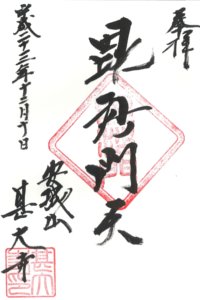 奉拝
毘沙門天
安城山
甚大寺
平成二十三年十二月十日